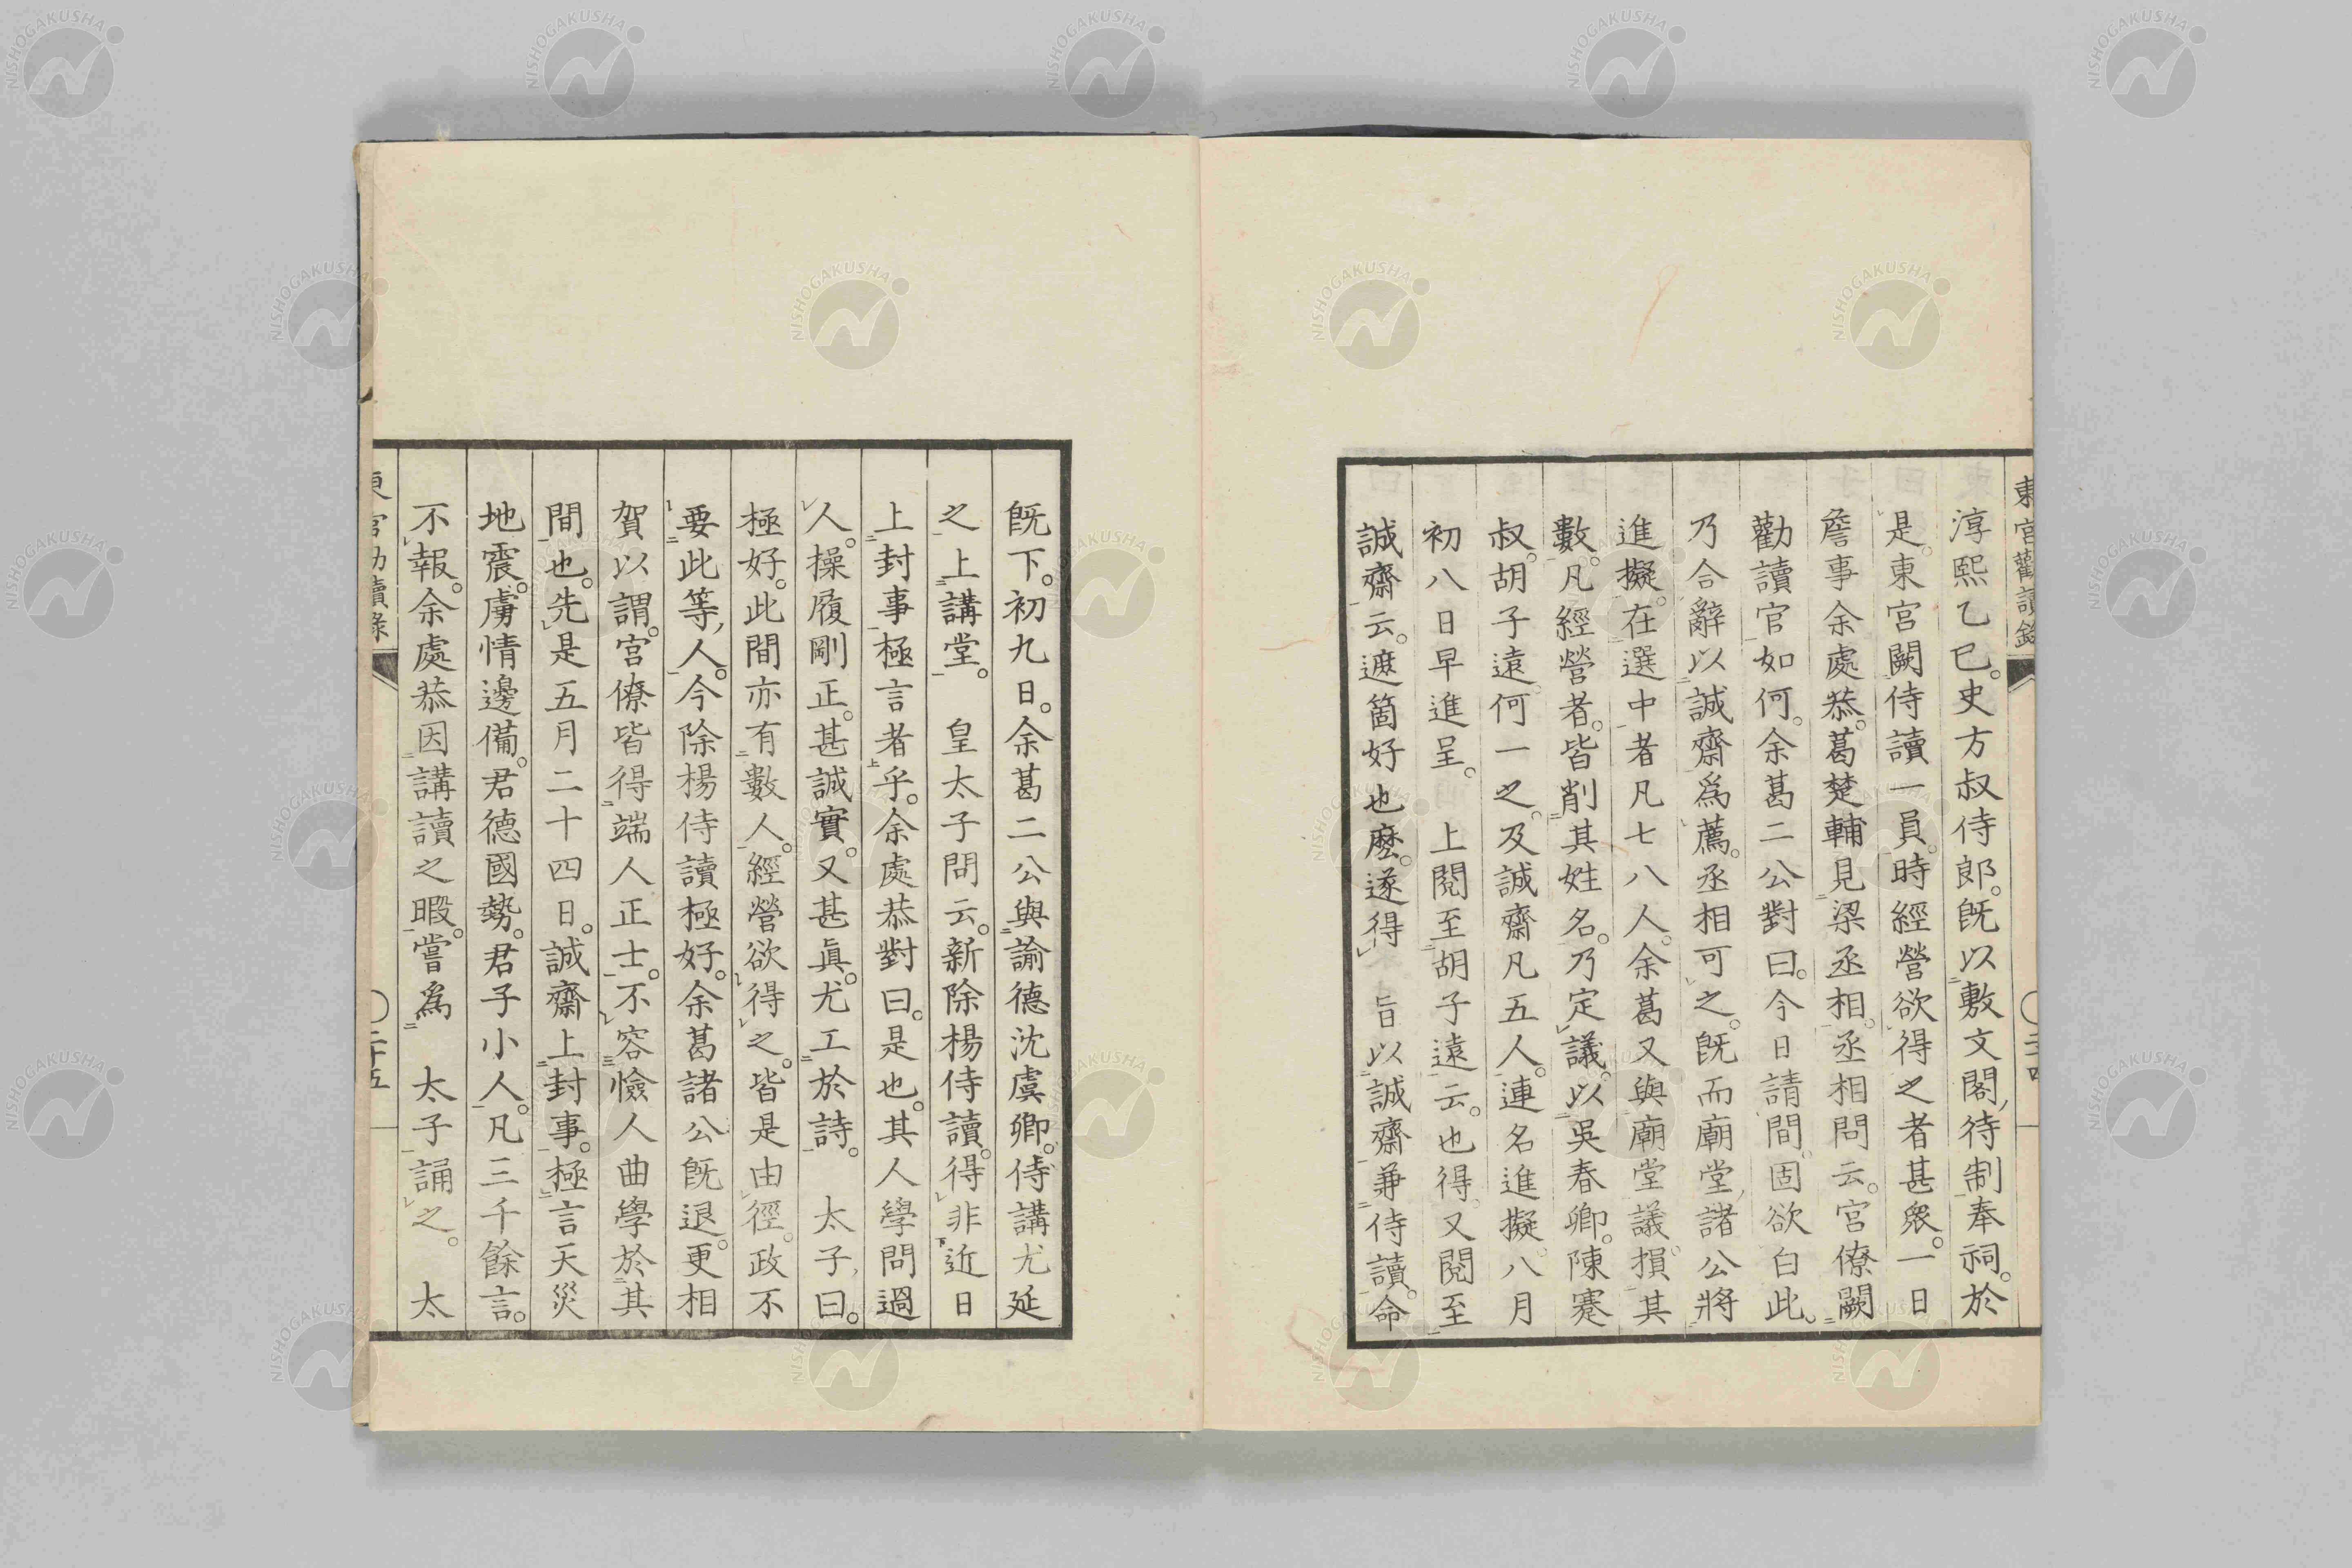 東宮勸讀錄
淳熙乙巳。史方叔侍郎。既以敷文閣待制奉祠。於
是東宮闕侍讀一員。時經營欲得之者甚衆。一日
詹事余處恭。葛楚輔見梁丞相。丞相問云。宮僚闕
勸讀官如何。余葛二公對曰。今日請間。固欲白此。
乃合辭以誠齋爲薦。丞相可之。既而廟堂諸公將
進擬。在選中者凡七八人。余葛又與廟堂議損其
數。凡經營者。皆削其姓名。乃定議。以吳春卿。陳蹇
叔。胡子遠。何一之。及誠齋凡五人。連名進擬。八月
初八日早進呈。 上閱至胡子遠云。也得。又閱至
誠齋云。遮箇好也麼。遂得 旨以誠齋兼侍讀。命
既下。初九日。余葛二公與諭德沈虞卿。侍講尤延
之上講堂。 皇太子問云。新除楊侍讀。得非近日
上封事極言者乎。余處恭對曰。是也。其人學問過
人。操履剛正。甚誠實。又甚眞。尤工於詩。 太子曰。
極好。此間亦有數人。經營欲得之。皆是由徑。政不
要此等人。今除楊侍讀極好。余葛諸公既退。更相
賀以謂。宮僚皆得端人正士。不容憸人曲學於其
間也。先是五月二十四日。誠齋上封事。極言天災
地震。虜情邊備。君德國勢。君子小人。凡三千餘言。
不報。余處恭因講讀之暇。嘗爲 太子誦之。 太
二十五
NISHOGAKUSHA